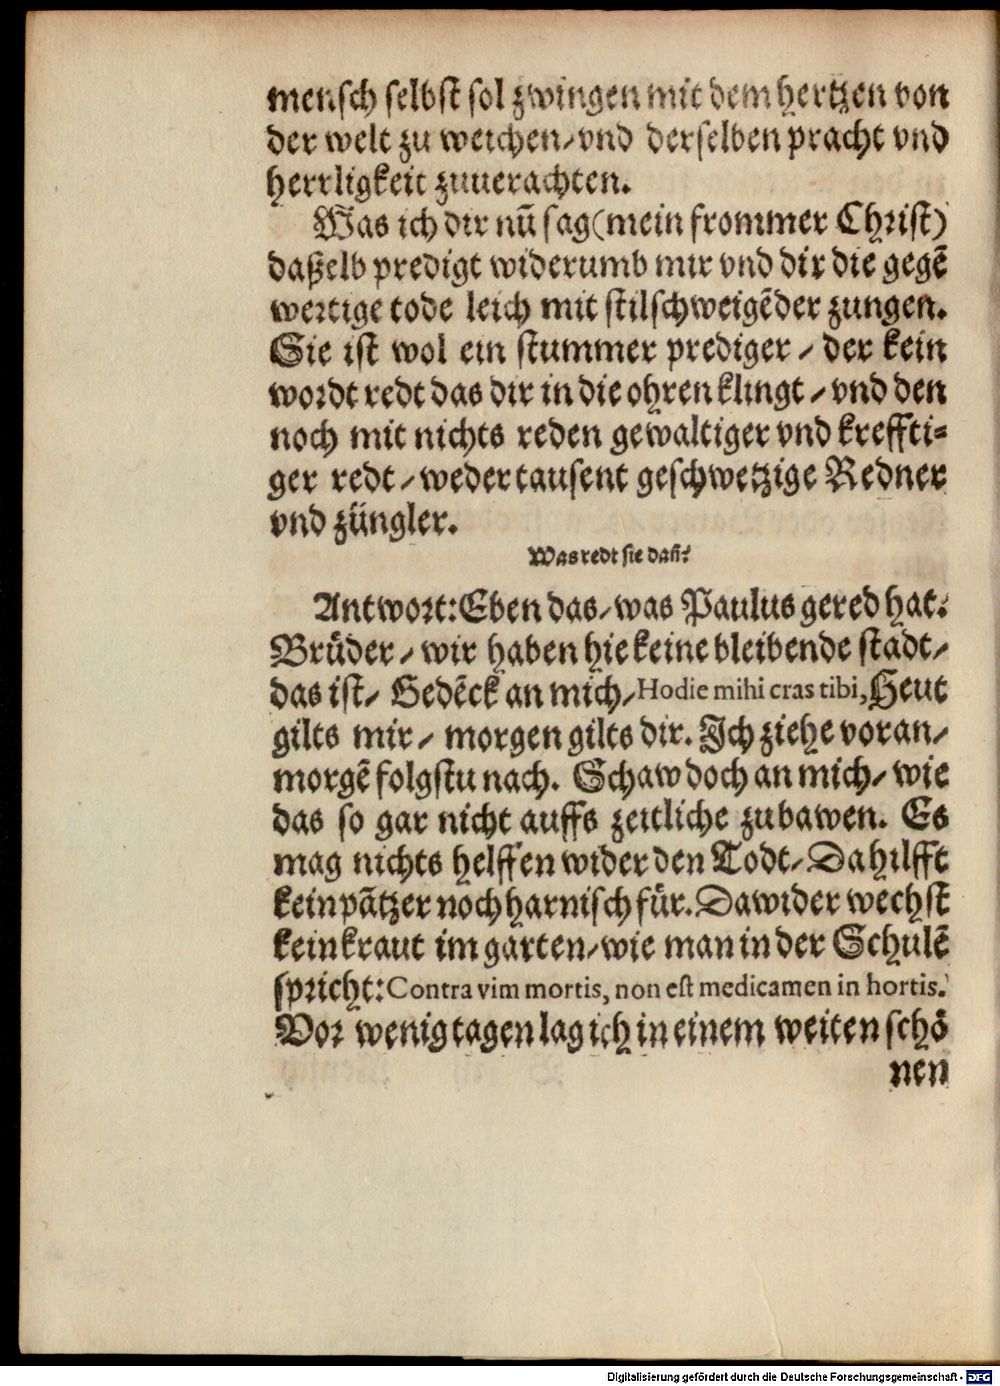 mensch selbst sol zwingen mit dem hertzen von
der welt zu weichen/ vnd derselben pracht vnd
herrligkeit zuuerachten.
Was ich dir nū sag (mein frommer Christ)
daßelb predigt widerumb mir vnd dir die gegē
wertige tode leich mit stilschweigēder zungen.
Sie ist wol ein stummer prediger / der kein
wordt redt das dir in die ohren klingt / vnd den
noch mit nichts reden gewaltiger vnd kreffti-
ger redt / weder tausent geschwetzige Redner
vnd züngler.
Was redt sie dañ?
Antwort: Eben das / was Paulus gered hat:
Brüder / wir haben hie keine bleibende stadt /
das ist / Gedēck an mich / Hodie mihi cras tibi, Heut
gilts mir / morgen gilts dir. Ich ziehe voran /
morgē folgstu nach. Schaw doch an mich / wie
das so gar nicht auffs zeitliche zubawen. Es
mag nichts helffen wider den Todt / Da hilfft
kein pātzer noch harnisch für. Dawider wechst
kein kraut im garten / wie man in der Schulē
spricht: Contra vim mortis, non est medicamen in hortis.
Vor wenig tagen lag ich in einem weiten schö
nen
Digitalisierung gefördert durch die Deutsche Forschungsgemeinschaft - DFG